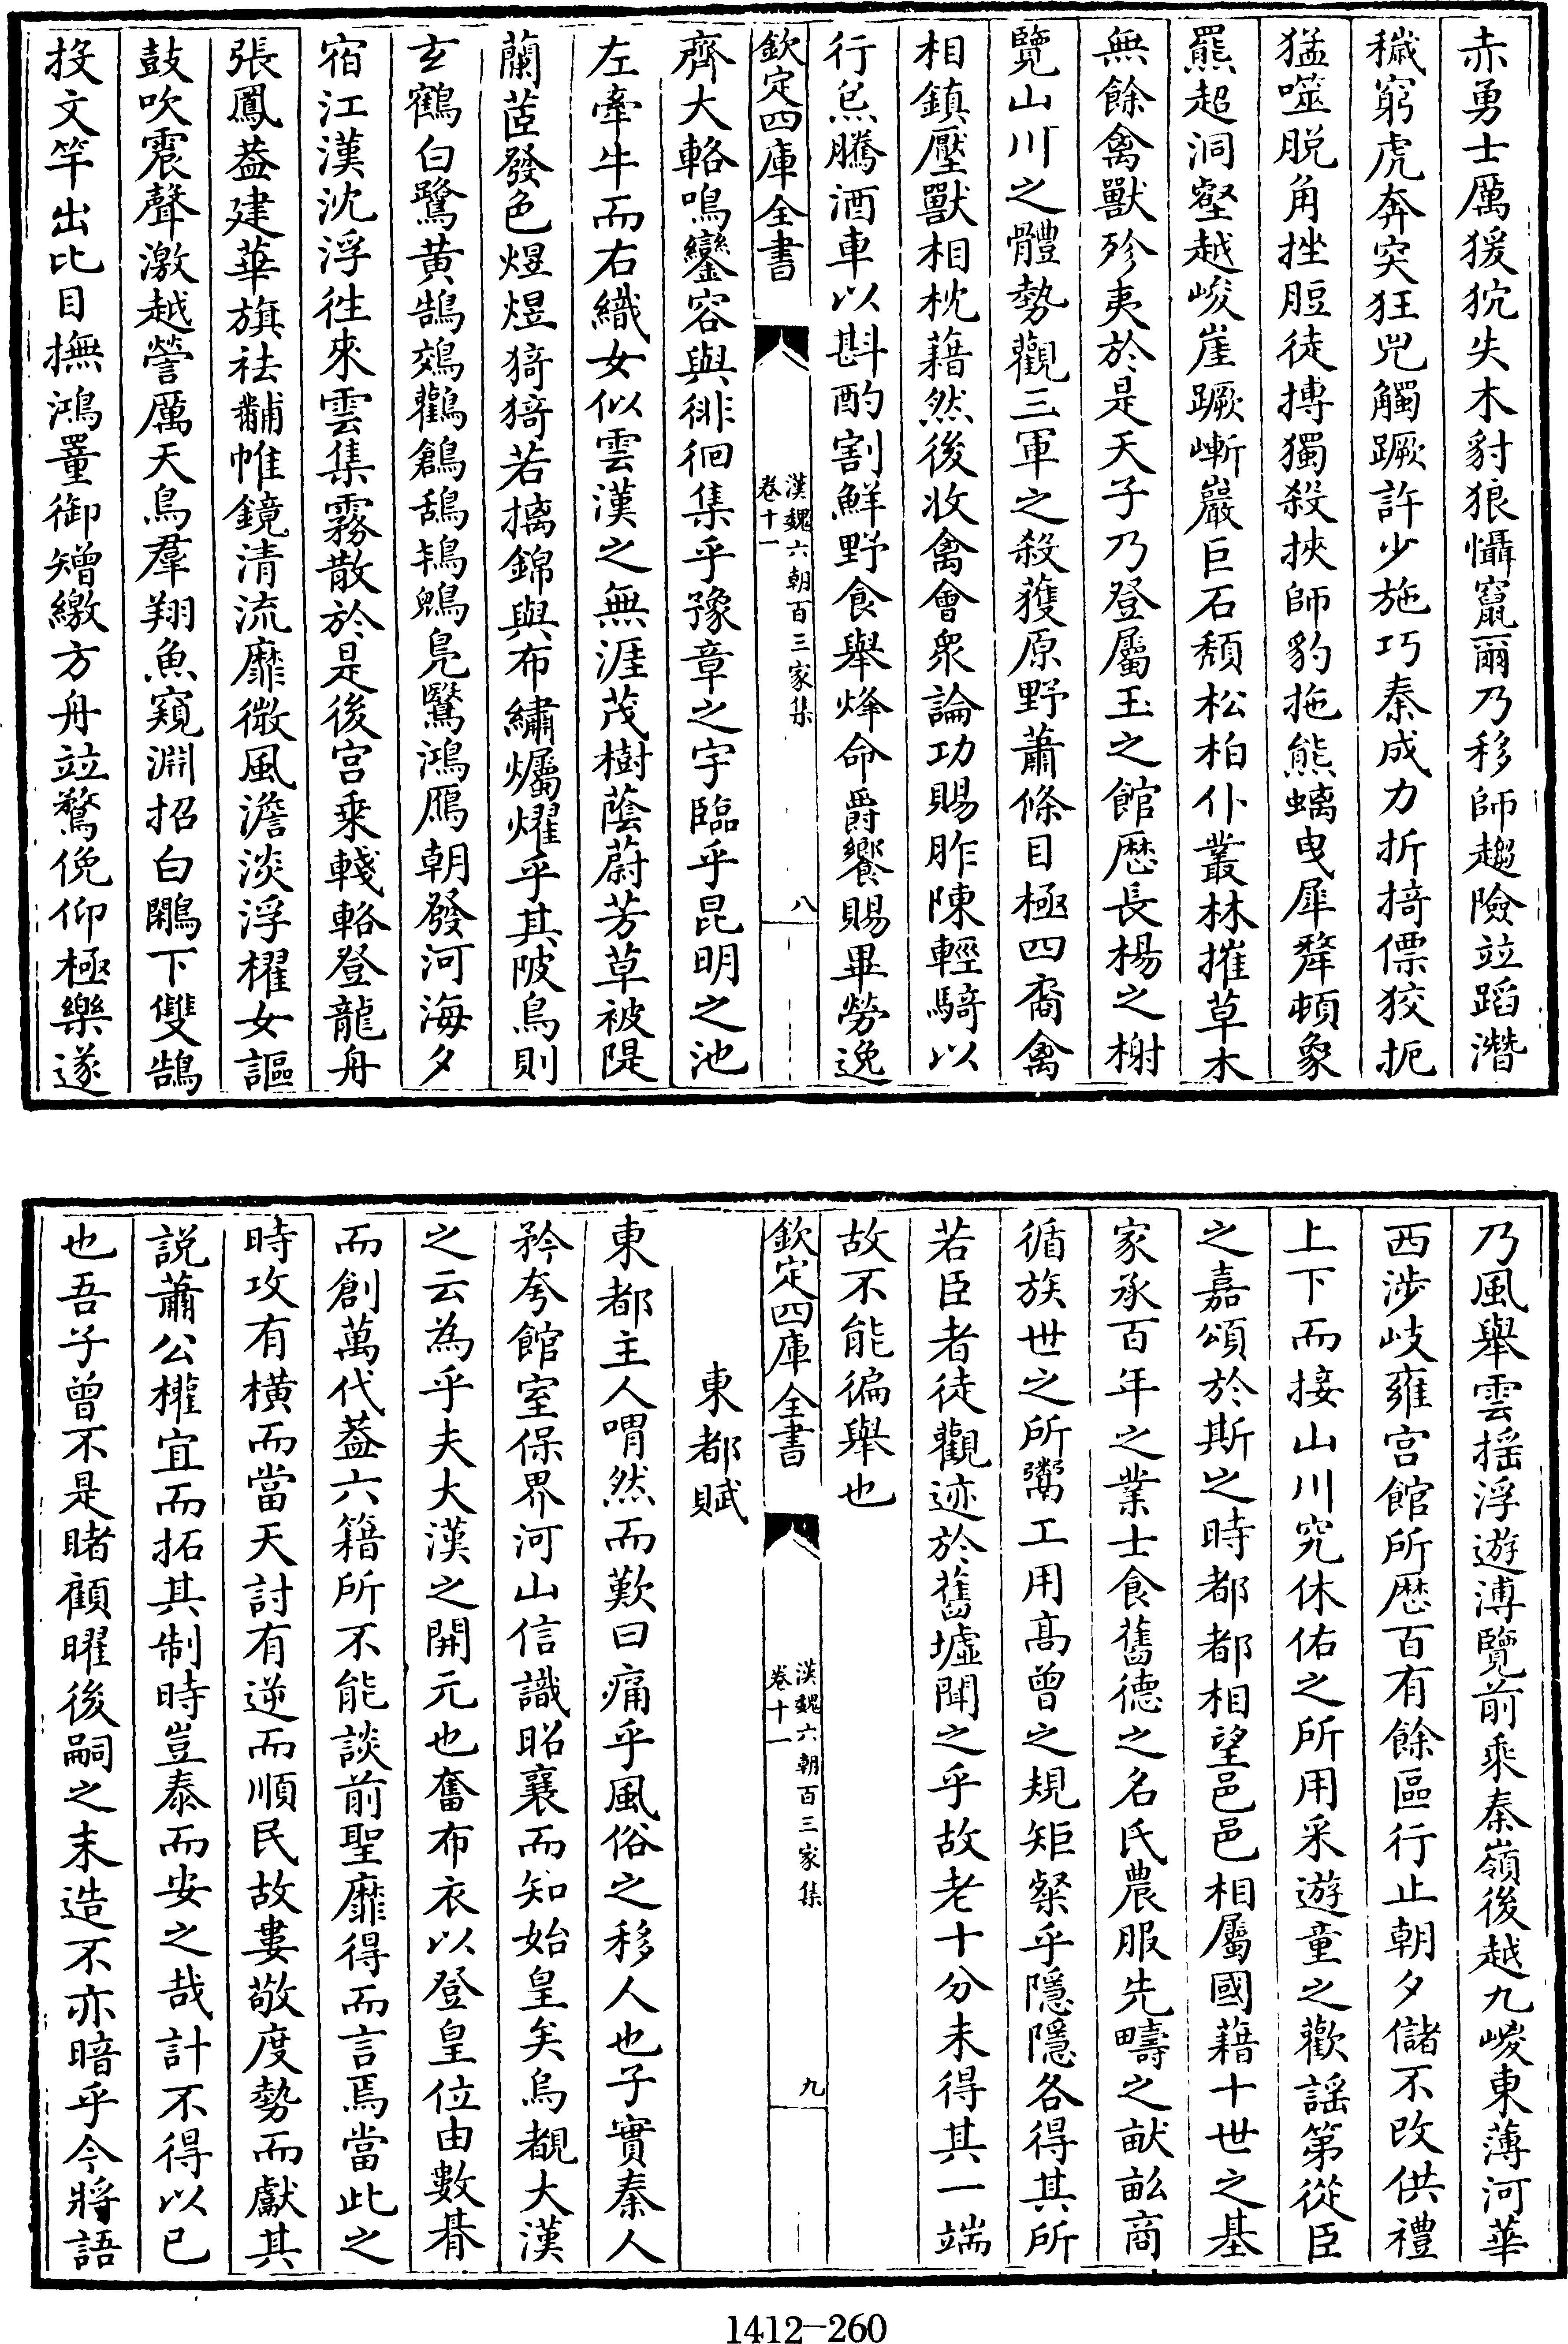 赤勇士厲猨狖失木豺狼懾竄爾乃移師趨險竝蹈潛
穢窮虎奔突狂兕觸蹶許少施巧秦成力折掎僄狡扼
猛噬脱角挫脰徒搏獨殺挾師豹拖熊螭曳犀犛頓象
羆超洞壑越峻崖蹶嶃巖巨石頹松柏仆叢林摧草木
無餘禽獸殄夷於是天子乃登屬玉之館厯長楊之榭
覽山川之體勢觀三軍之殺獲原野蕭條目極四裔禽
相鎮壓獸相枕藉然後收禽會衆論功賜胙陳輕騎以
行炰騰酒車以斟酌割鮮野食舉烽命爵饗賜畢勞逸
欽定四庫全書
漢魏六朝百三家集
卷十一
八
齊大輅鳴鑾容與徘徊集乎豫章之宇臨乎昆明之池
左牽牛而右織女似雲漢之無涯茂樹蔭蔚芳草被隄
蘭茝發色煜煜猗猗若摛錦與布繡爥燿乎其陂鳥則
玄鶴白鷺黄鵠鵁鸛鶬鴰鴇鶂鳧鷖鴻鴈朝發河海夕
宿江漢沈浮往來雲集霧散於是後宫乘輚輅登龍舟
張鳳葢建華旗袪黼帷鏡清流靡微風澹淡浮櫂女謳
鼓吹震聲激越謍厲天鳥羣翔魚窺淵招白鷴下雙鵠
投文竿出比目撫鴻罿御矰繳方舟竝騖俛仰極樂遂
乃風舉雲搖浮遊溥覽前乘秦嶺後越九嵕東薄河華
西涉岐雍宫館所厯百有餘區行止朝夕儲不改供禮
上下而接山川究休佑之所用采遊童之歡謡第從臣
之嘉頌於斯之時都都相望邑邑相屬國藉十世之基
家承百年之業士食舊德之名氏農服先疇之畎畝商
循族世之所鬻工用髙曾之規矩粲乎隱隱各得其所
若臣者徒觀迹於舊墟聞之乎故老十分未得其一端
故不能徧舉也
欽定四庫全書
漢魏六朝百三家集
卷十一
九
東都賦
東都主人喟然而歎曰痛乎風俗之移人也子實秦人
矜夸館室保界河山信識昭襄而知始皇矣烏覩大漢
之云為乎夫大漢之開元也奮布衣以登皇位由數朞
而創萬代葢六籍所不能談前聖靡得而言焉當此之
時攻有横而當天討有逆而順民故婁敬度勢而獻其
説蕭公權宜而拓其制時豈泰而安之哉計不得以已
也吾子曾不是睹顧曜後嗣之末造不亦暗乎今將語
1412—260